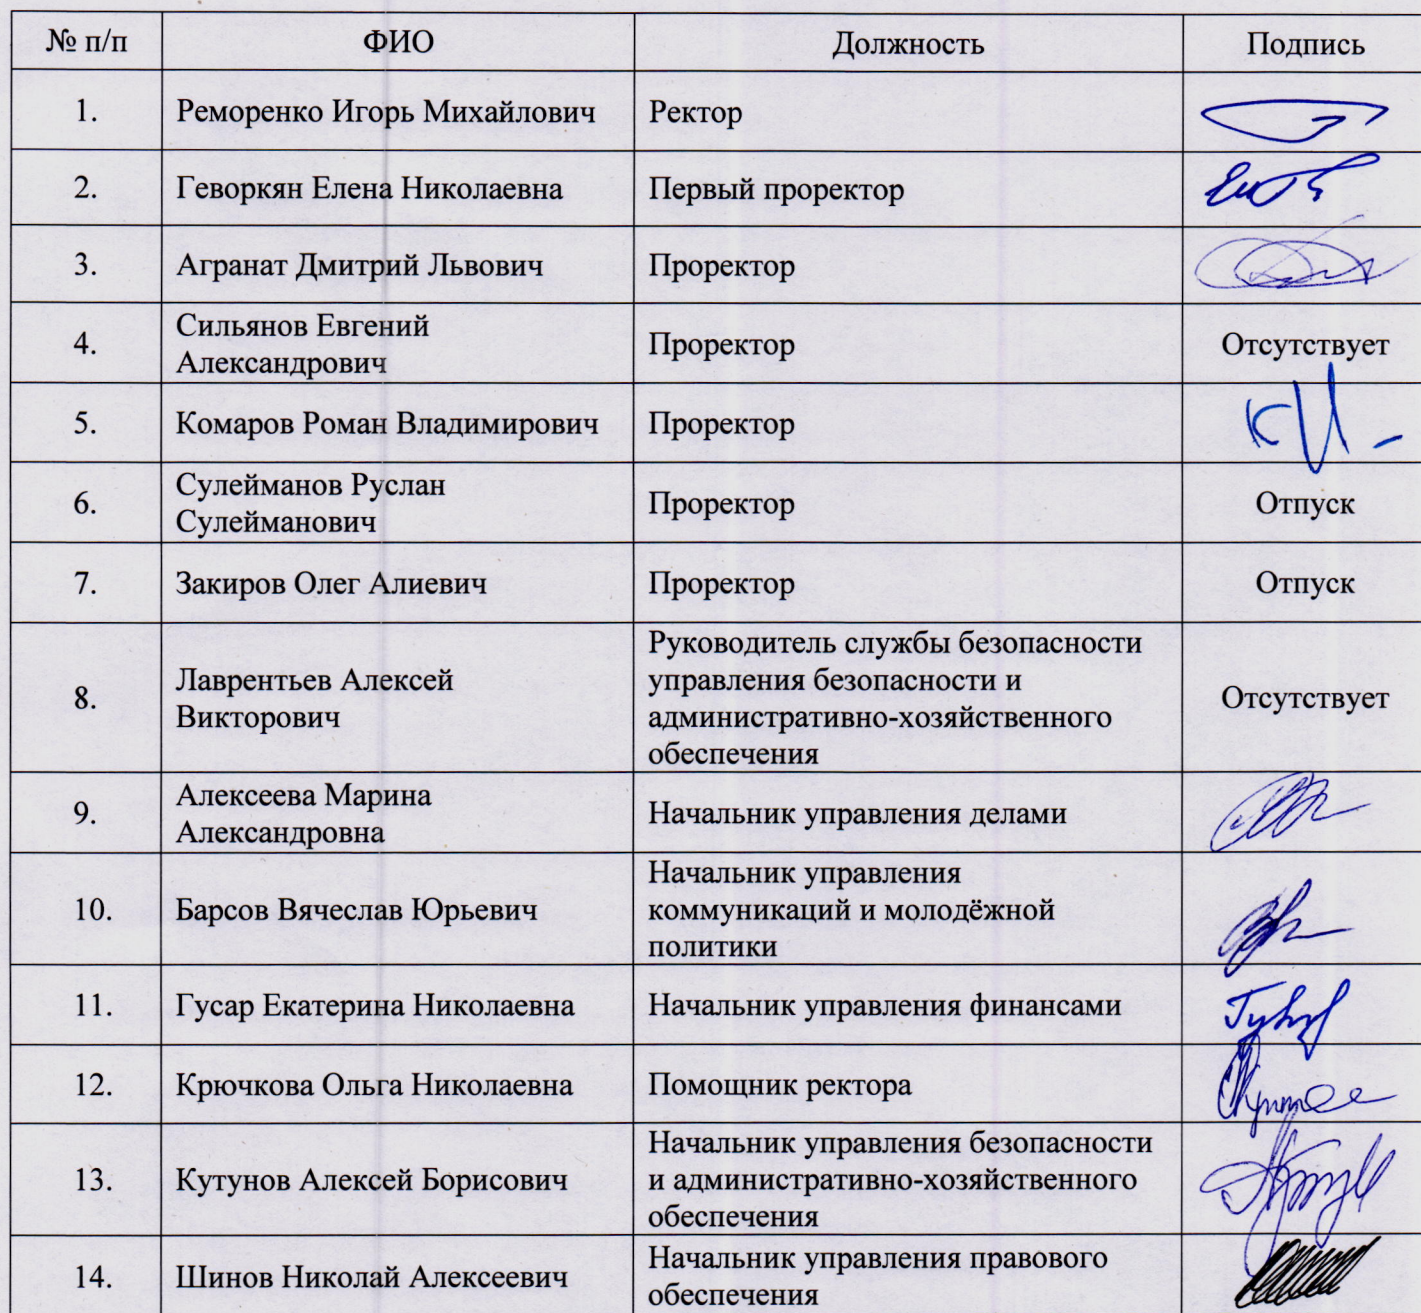 № п/п ФИО Должность Подпись
1. Реморенко Игорь Михайлович Ректор
2. Геворкян Елена Николаевна Первый проректор
3. Агранат Дмитрий Львович Проректор
4. Сильянов Евгений
Александрович Проректор Отсутствует
5. Комаров Роман Владимирович Проректор
6. Сулейманов Руслан
Сулейманович Проректор Отпуск
7. Закиров Олег Алиевич Проректор Отпуск
8. Лаврентьев Алексей
Викторович
Руководитель службы безопасности
управления безопасности и
административно-хозяйственного
обеспечения
Отсутствует
9. Алексеева Марина
Александровна Начальник управления делами
10. Барсов Вячеслав Юрьевич
Начальник управления
коммуникаций и молодёжной
политики
11. Гусар Екатерина Николаевна Начальник управления финансами
12. Крючкова Ольга Николаевна Помощник ректора
13. Кутунов Алексей Борисович
Начальник управления безопасности
и административно-хозяйственного
обеспечения
14. Шинов Николай Алексеевич
Начальник управления правового
обеспечения